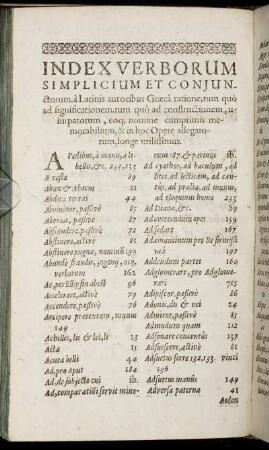 INDEX VERBORUM
SIMPLICIUM ET CONJUN-
ctorum, à Latinis autoribus Græcâ ratione, tum quò
ad significationem, tum quò ad constructionem, u-
surpatorum, eoq; nomine cumprimis me-
morabilium, & in hoc Opere allegato-
rum, longè utilissimus.
A Pedibus, à manu, à li-
bello, &c. 232, 233
A resta 89
Abax & Abacus 21
Abdita terrai 44
Abominor, passivè 72
Aborsus, passivè 72
Abscondere, passivè 72
Abstinere, activè 81
Abstinere pugnæ, nominũ 139
Abundè fraudis, jugoru, seu
verborum 162
Ac, per Ellipsin abest 96
Accelerare, activè 79
Accendere, passivè 76
Accipere præturam, munus
149
Achilles, lei & lei, li 23
Acta 15
Acuta belli 44
Ad, pro apud 184
Ad, de subjecto cui ib.
Ad, comparationi servit mino-
rum 187. & perinq; ib.
Ad cyathos, ad baculum, ad
sites, ad lecticam, ad cau-
sas, ad prælia, ad manus,
ad eloquium homo 235
Ad Dianæ, &c. 69
Ad avertendum apes 159
Ad sedare 167
Adamantinum pro Re firmissi-
mâ 197
Addendum partes 160
Adglomerare, pro Adglume-
rari 705
Adipiscor, passivè 86
Adonin, du & nei 24
Admiror, passivè 86
Admodum quam 112
Adsonare concentus 137
Adsuescere, activè 81
Adsuetus ferre 132, 133. vinci
136
Adsuetus manus 149
Adversa paterna 42
Aedon